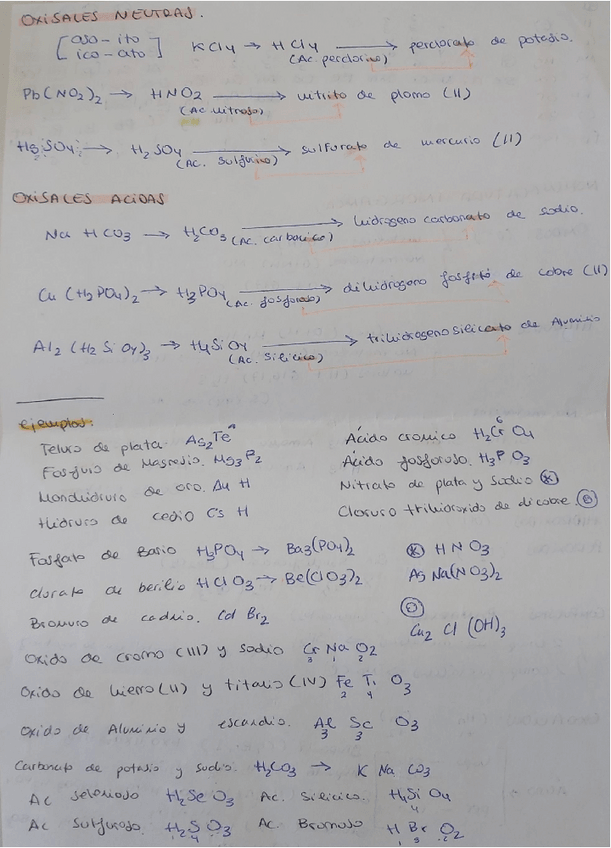 OXISALES NEUTRAS.
[oso-ito
ico-ato]
KClO4 → HClO4 → perclorato de potasio.
(Ac. perclorico)
Pb(NO2)2 → HNO2 → nitrito de plomo (II)
(Ac. nitroso)
HgSO4 → H2SO4 → sulfurato de mercurio (II)
(Ac. sulfurico)
OXISALES ACIDAS
Na HCO3 → H2CO3 → hidrogeno carbonato de sodio.
(Ac. carbonico)
Cu (H2PO4)2 → H3PO4 → dihidrogeno fosfito de cobre (II)
(Ac. fosforoso)
Al2 (H2SiO4)3 → H4SiO4 → trihidrogenosilicato de Aluminio
(Ac. silicico)
ejemplos:
Teluro de plata. Ag2Te
Fosfuro de Magnesio. Mg3P2
Monohidruro de oro. Au H
Hidruro de cesio Cs H
Ácido cromico H2CrO4
6
Ácido fosforoso. H3PO3
Nitrato de plata y sodio
Cloruro trihidroxido de dicobre.
Fosfato de Bario H3PO4 → Ba3(PO4)2
Clorato de berilio HClO3 → Be(ClO3)2
Bromuro de cadmio. Cd Br2
HNO3
Ag Na(NO3)2
Cu2 Cl (OH)3
Oxido de cromo (III) y sodio Cr Na O2
3 1 2
Oxido de hierro (II) y titanio (IV) Fe Ti O3
2 4
Oxido de Aluminio y escandio. Al Sc O3
3 3
Carbonato de potasio y sodio. H2CO3 → K Na CO3
Ac selenioso H2SeO3 Ac. Silicico. H4SiO4
4
Ac sulfuroso. H2SO3 Ac. Bromoso H Br O2
4 1 3 2